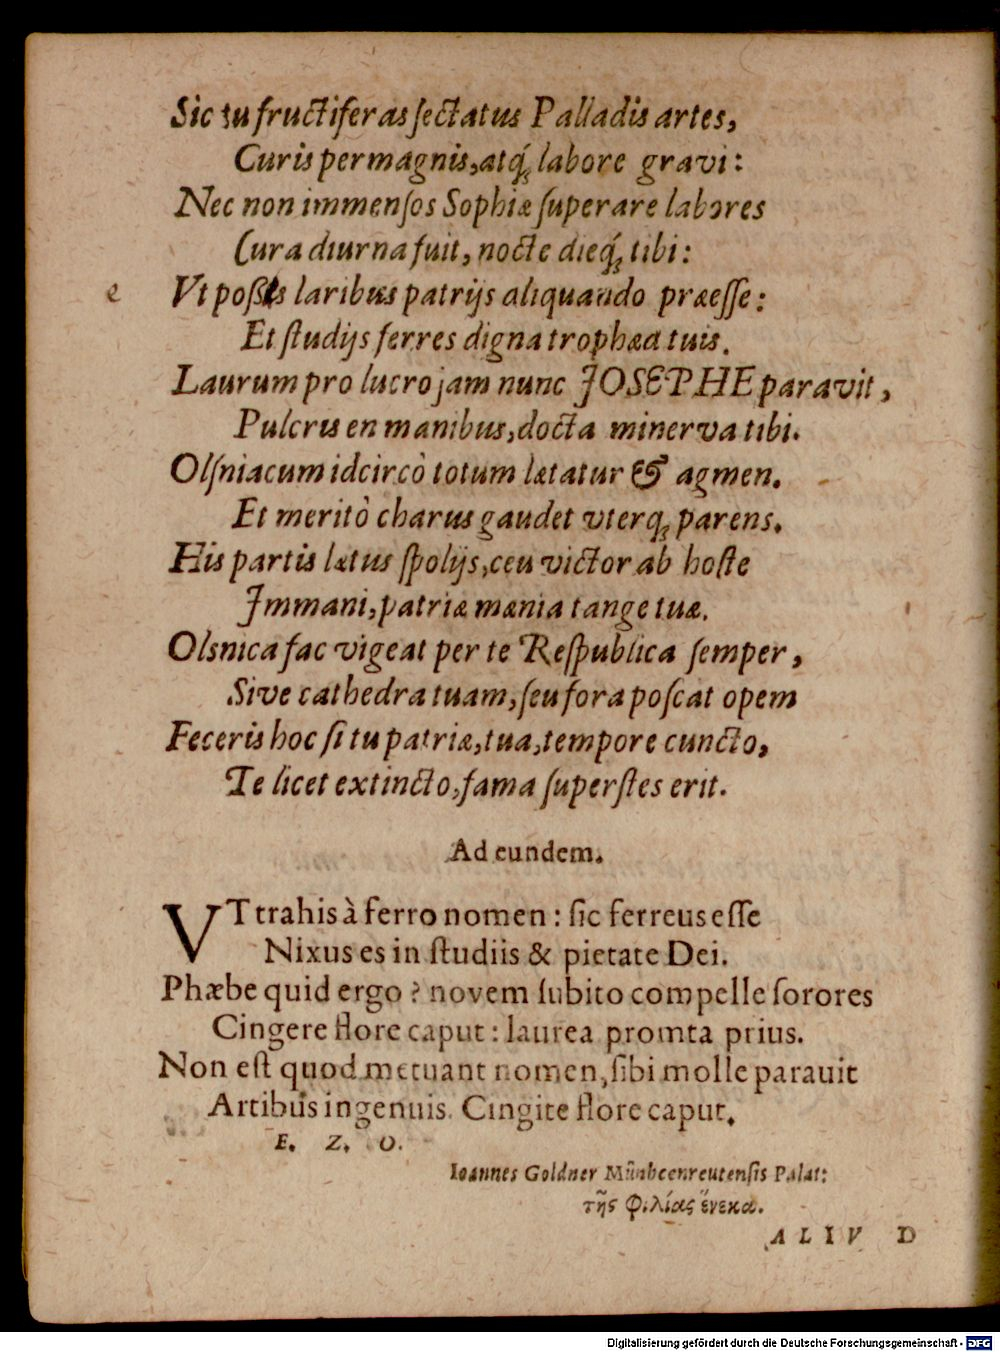 Sic tu fructiferas ſectatus Palladis artes,
Curis permagnis, atq́ꝫ labore gravi:
Nec non immenſos Sophiæ ſuperare labores
Cura diurna fuit, nocte dieq́ꝫ tibi:
e Vt poßis laribus patrijs aliquando præeſſe:
Et ſtudijs ferres digna trophæa tuis.
Laurum pro lucro jam nunc JOSEPHE paravit,
Pulcris en manibus, docta minerva tibi.
Olſniacum idcircò totum lætatur & agmen.
Et meritò charus gaudet vterqꝫ parens.
His partis lætus ſpolijs, ceu victor ab hoſte
Jmmani, patriæ mænia tange tuæ.
Olsnica fac vigeat per te Reſpublica ſemper,
Sive cathedra tuam, ſeu fora poſcat opem
Feceris hoc ſi tu patriæ, tua, tempore cuncto,
Te licet extincto, fama ſuperſtes erit.
Ad eundem.
VT trahis à ferro nomen: ſic ferreus eſſe
Nixus es in ſtudiis & pietate Dei.
Phæbe quid ergo? novem ſubito compelle ſorores
Cingere flore caput: laurea promta prius.
Non eſt quod metuant nomen, ſibi molle parauit
Artibus ingenuis. Cingite flore caput.
E. Z. O.
Ioannes Goldner Münbcenreutenſis Palat:
τῆς Φιλίας ἕνεκα.
ALIVD
Digitalisierung gefördert durch die Deutsche Forschungsgemeinschaft - DFG